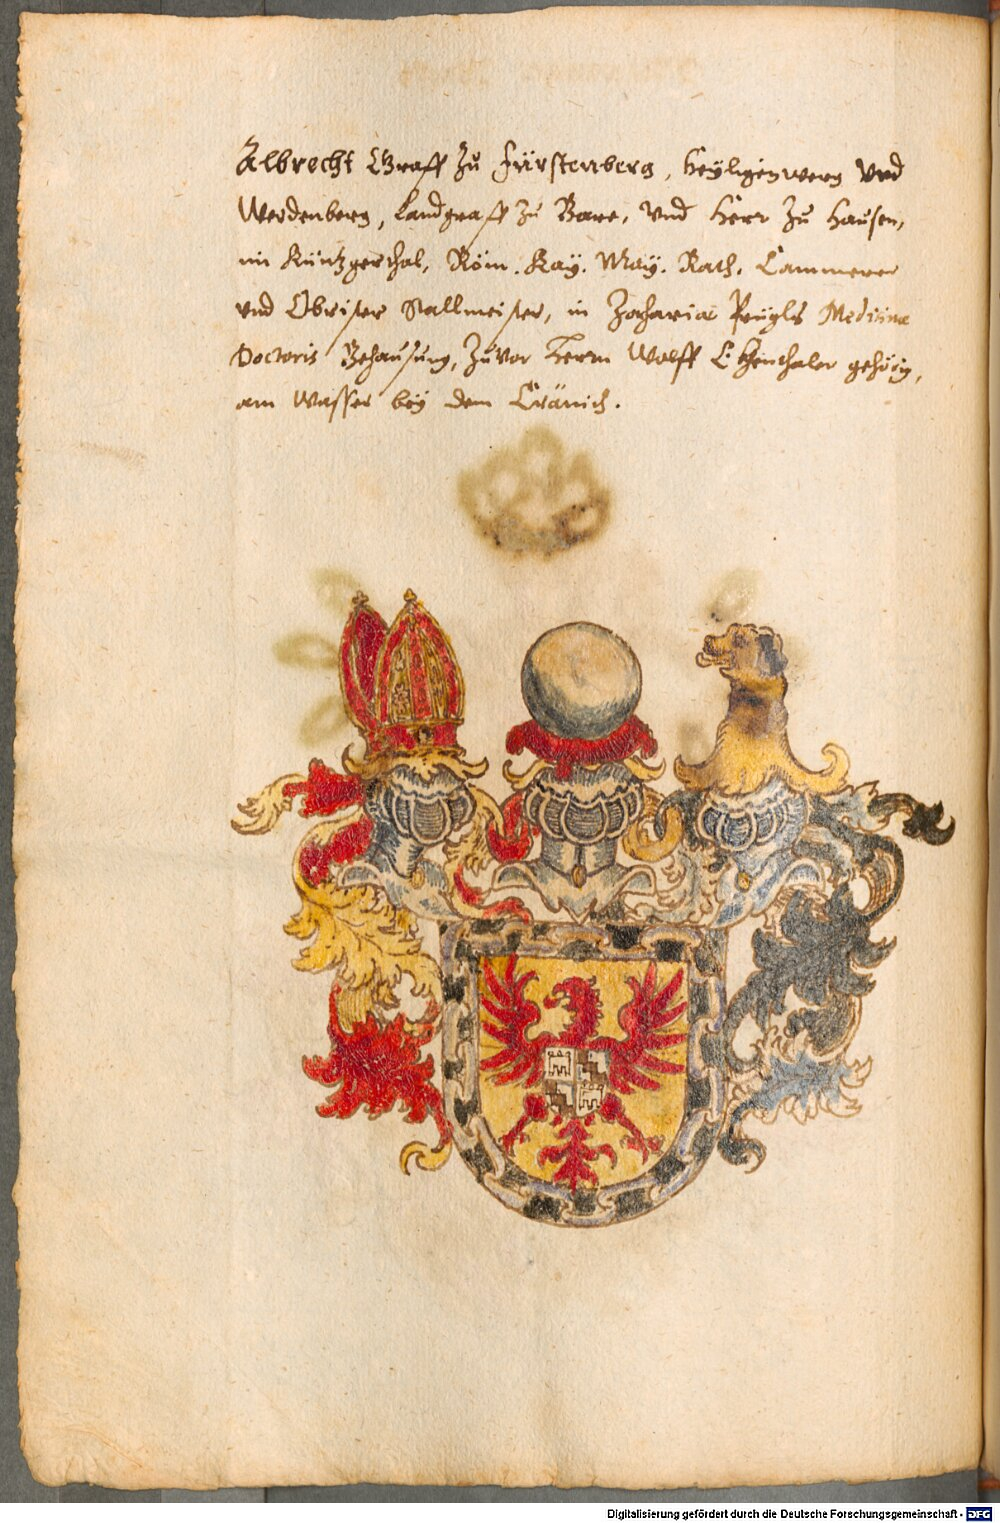 Albrecht Graff zu Fürstenberg, Heyligenwerg vnd
Werdenberg, Landgraff zu Bare, vnd Herr zu Hausen,
im Küntzgerthal, Röm. Kay. May. Rath, Cammerer
vnd Obrister Stallmeister, in Zachariæ Prügls Medicinæ
Doctoris Behausung, zuvor Herrn Wolff Ekhenthaler gehörig,
am Wasser bey dem Cränich.
Digitalisierung gefördert durch die Deutsche Forschungsgemeinschaft - DFG